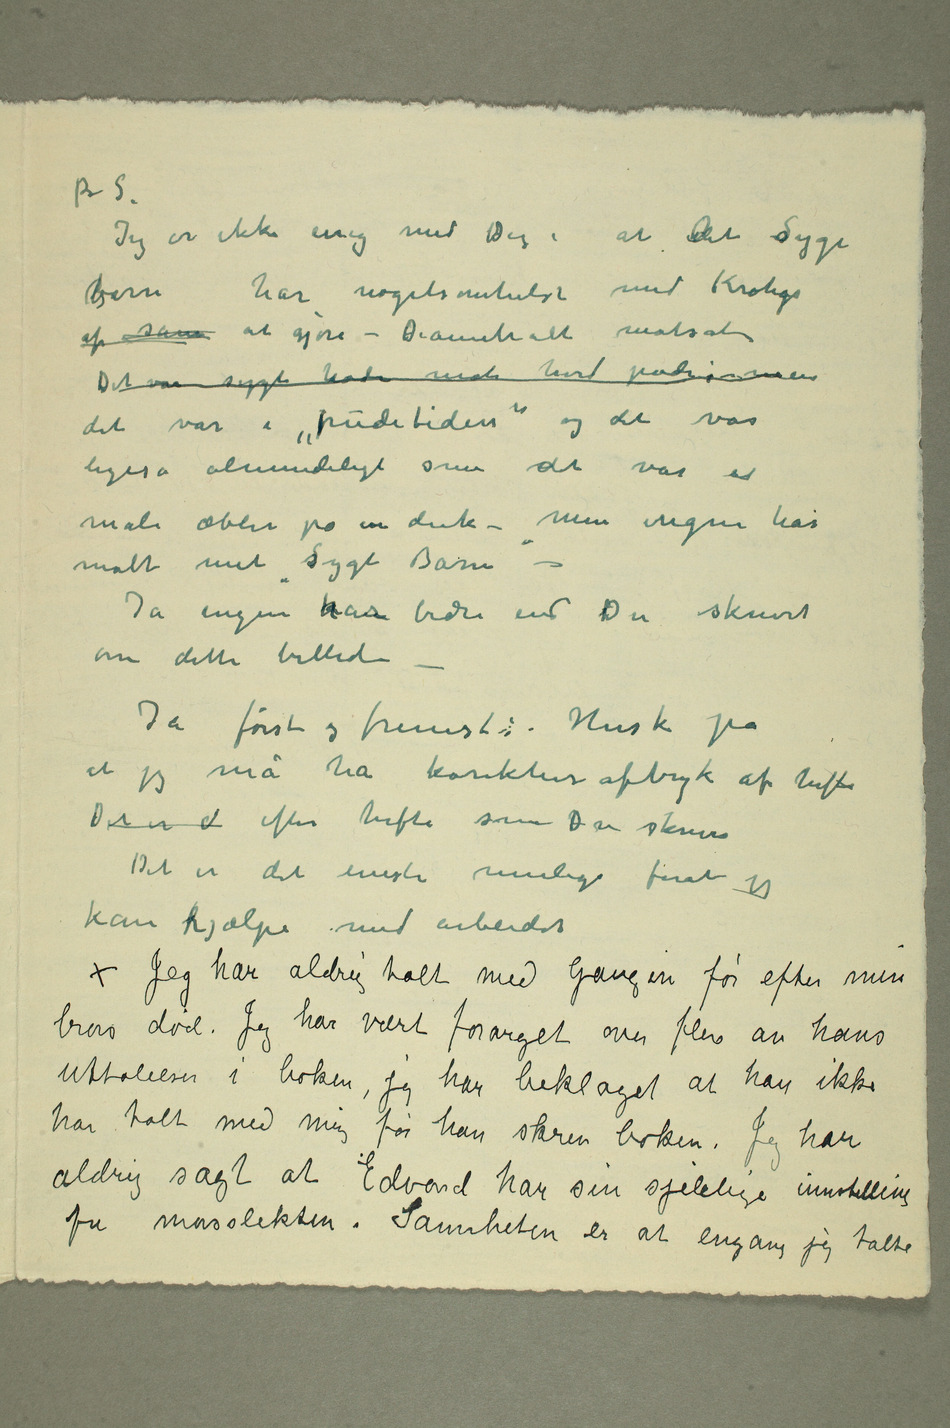 P S.
Jeg er ikke enig med Dig i at det Syge
barn har nogetsomhelst med Kroghs
af samme at gjøre – Diametralt motsat
Det var sygt hode mod hvid pude; men
det var i „pudetiden“ og det var
ligeså almindeligt som det var at
male æbler på en duk – men ingen har
malt mit „Sygt Barn“ –
Ja ingen har bedre end Du skrevet
om dette billede –
Ja først og fremst: Husk på
at jeg må ha korekturaftryk af hefte
Det er d efter hefte som Du skriver
Det er det eneste mulige forat jeg
kan hjælpe med arbeidet
x Jeg har aldrig talt med Gauguin før efter min
brors død. Jeg har vært forarget over flere av hans
uttalelser i boken, jeg har beklaget at han ikke
har talt med mig før han skrev boken. Jeg har
aldrig sagt at Edvard har sin sjelelige innstilling
fra morsslekten. Sannheten er at engang jeg talte